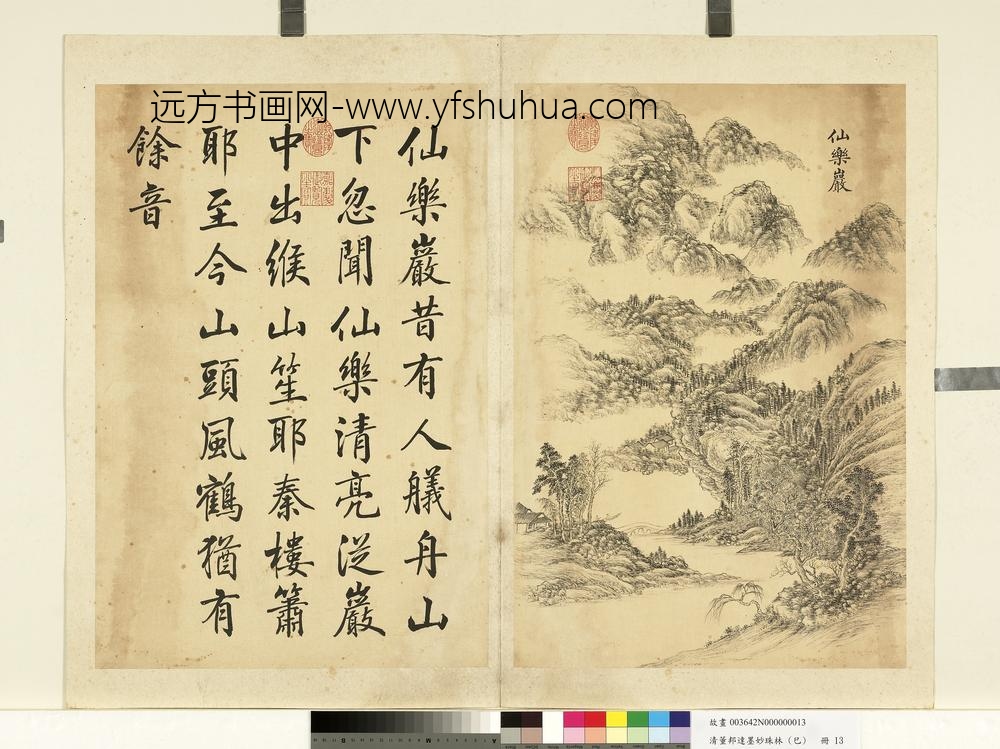 远方书画网-www.yfshuhua.com
仙樂巖
仙樂巖昔有人艤舟山
下忽聞仙樂清亮从巖
中出緱山笙耶秦樓簫
耶至今山頭風鶴猶有
餘音
故畫 003642N000000013
清董邦達墨妙珠林（巳） 冊 13